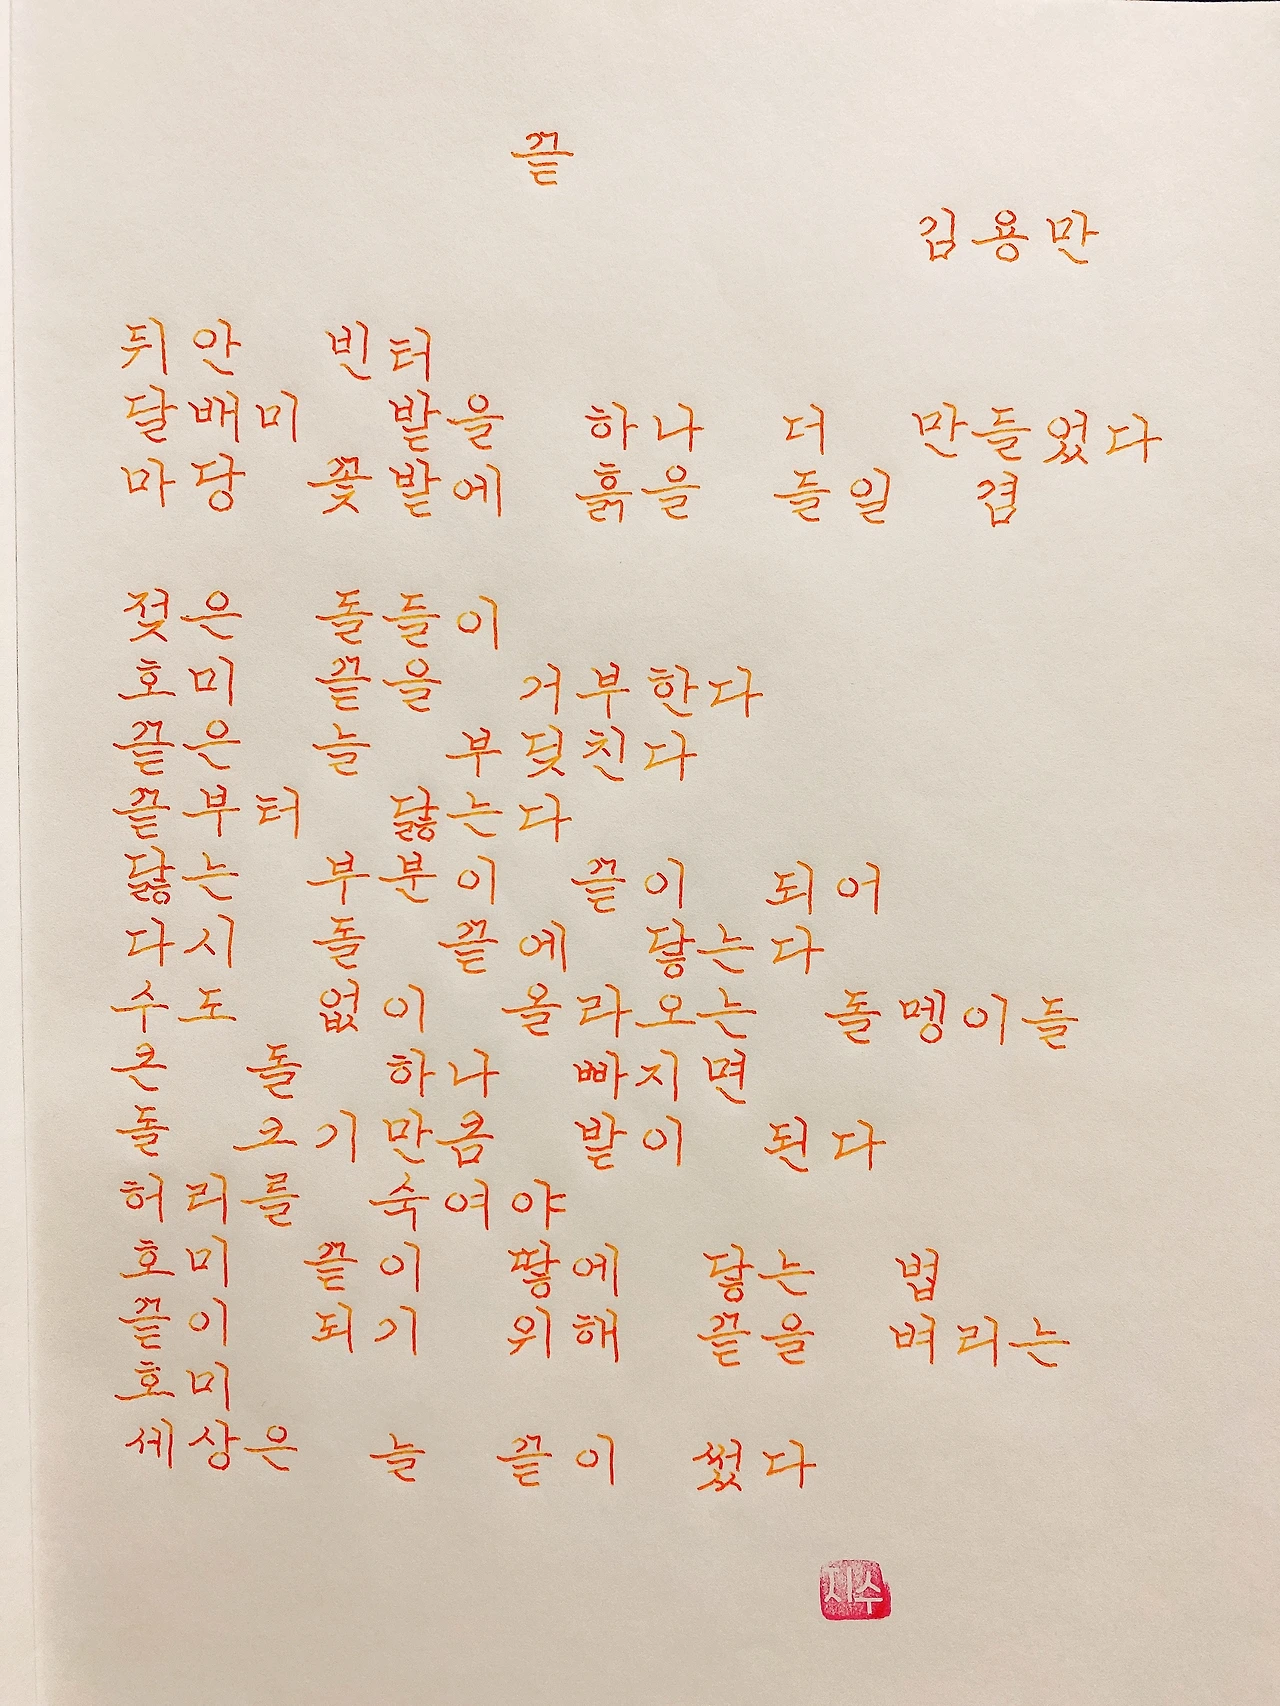 끝
김용만
뒤안 빈터
달배미 밭을 하나 더 만들었다
마당 꽃밭에 흙을 들일 겸
젖은 돌들이
호미 끝을 거부한다
끝은 늘 부딪친다
끝부터 닳는다
닳는 부분이 끝이 되어
다시 돌 끝에 닿는다
수도 없이 올라오는 돌멩이들
큰 돌 하나 빠지면
돌 크기만큼 밭이 된다
허리를 숙여야
호미 끝이 땅에 닿는 법
끝이 되기 위해 끝을 벼리는
호미
세상은 늘 끝이 썼다
지수